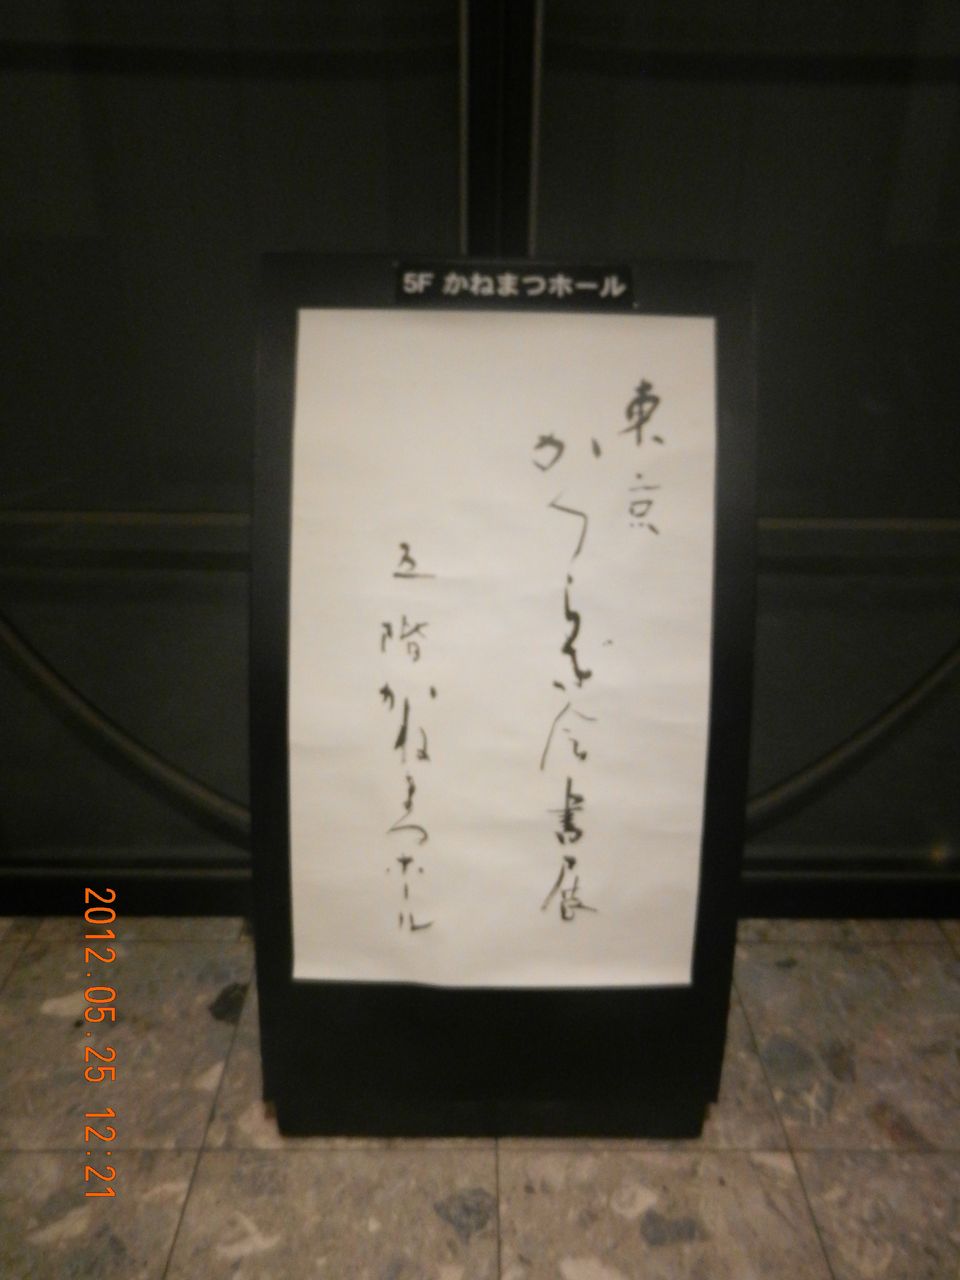 5F かねまつホール
東京
かくらば会書展
五階かねまつホール
2012.05.25 12:21